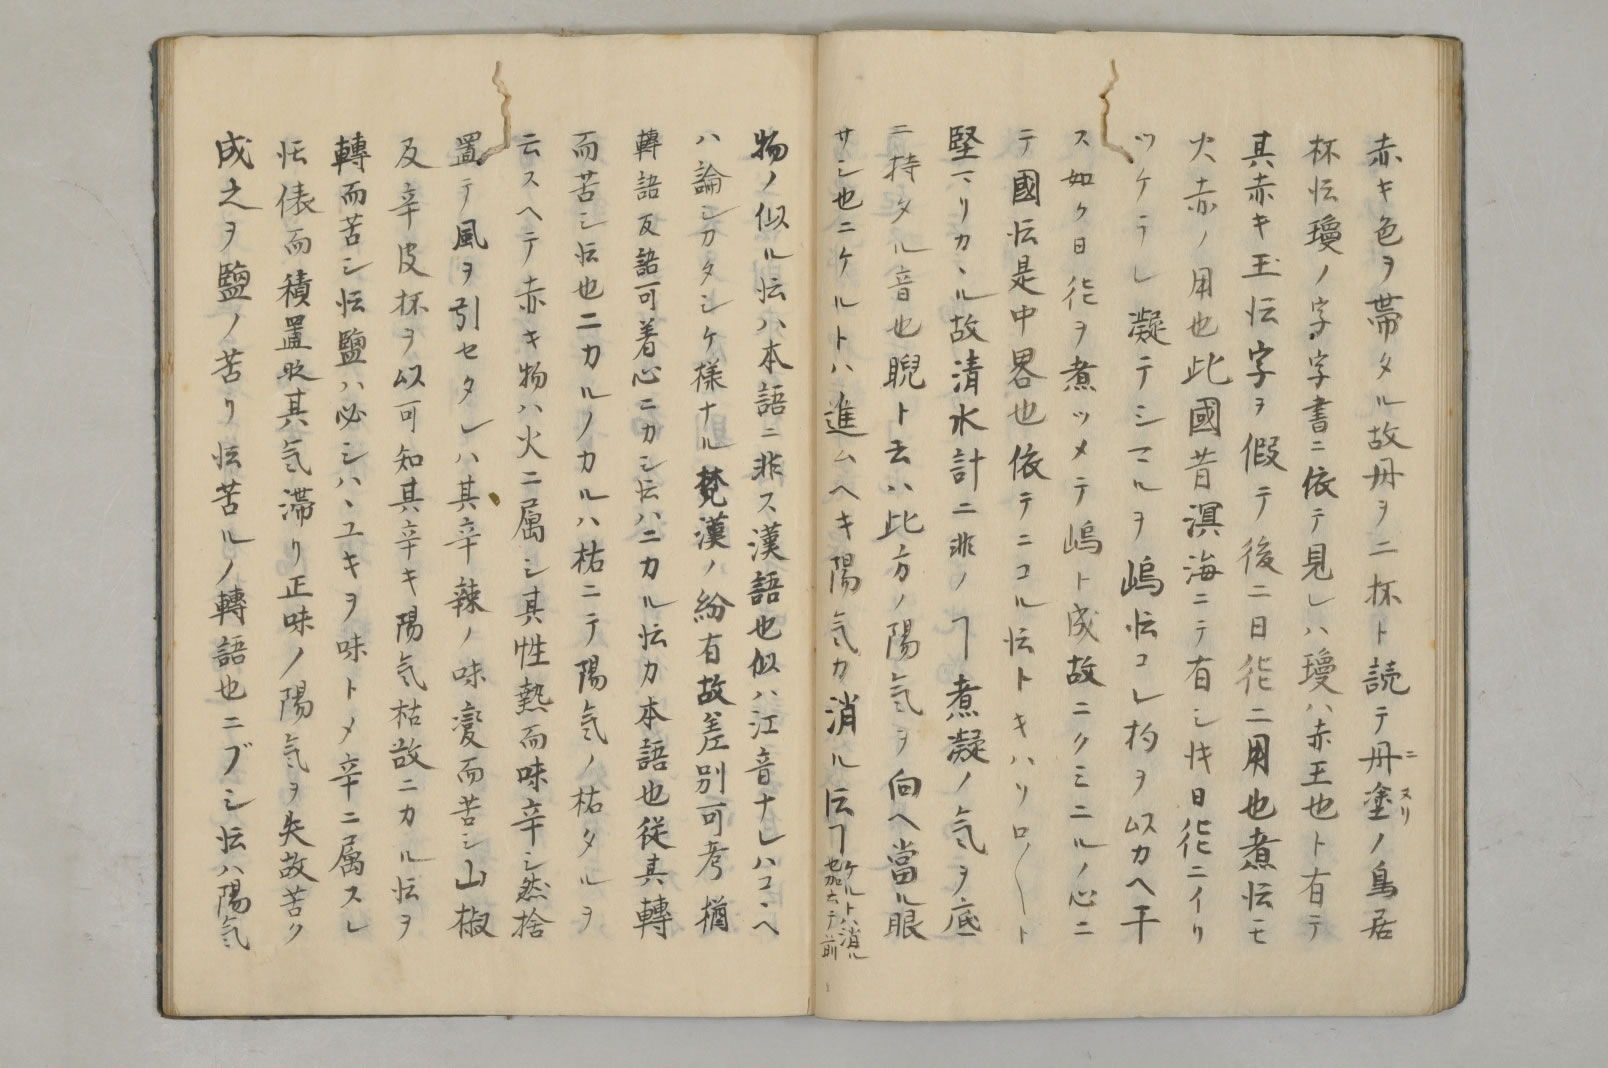 赤キ色ヲ帶タル故丹ヲニ杯ト読テ丹塗ノ鳥居
ニ
ヌリ
杯伝瓊ノ字字書ニ依テ見レハ瓊ハ赤玉也ト有テ
其赤キ玉伝字ヲ假テ後ニ日化ニ用也煮伝モ
火赤ノ用也此國昔溟海ニテ有シ時日化ニイリ
ツケラレ凝テシマルヲ嶋伝コレ杓ヲ以カヘ干
ス如ク日化ヲ煮ツメテ嶋ト成故ニクミニルノ心ニ
テ國伝是中畧也依テニコル伝トキハソロ〱ト
堅マリカヽル故清水計ニ非ノヿ煮凝ノ気ヲ底
ニ持タル音也睨ト云ハ此方ノ陽気ヲ向ヘ當ル眼
サシ也ニケルトハ進ムヘキ陽気カ消ル伝ヿ
ケルトハ消ル
物ノ似ル伝ハ本語ニ非ス漢語也似ハ江音ナレハコヽヘ
ハ論シカタシケ様ナル梵漢ノ紛有故差別可考猶
轉語反語可着心ニカシ伝ハニカル伝カ本語也従其轉
而苦シ伝也ニカルノカルハ枯ニテ陽気ノ枯タルヲ
云スヘテ赤キ物ハ火ニ属シ其性熱而味辛シ然捨
置テ風ヲ引セタレハ其辛辣ノ味変而苦シ山椒
及辛皮杯ヲ以可知其辛キ陽気枯故ニカル伝ヲ
轉而苦シ伝鹽ハ必シハヽユキヲ味トメ辛ニ属スレ
伝俵而積置時其気滞リ正味ノ陽気ヲ失故苦ク
成之ヲ鹽ノ苦リ伝苦ルノ轉語也ニブシ伝ハ陽気